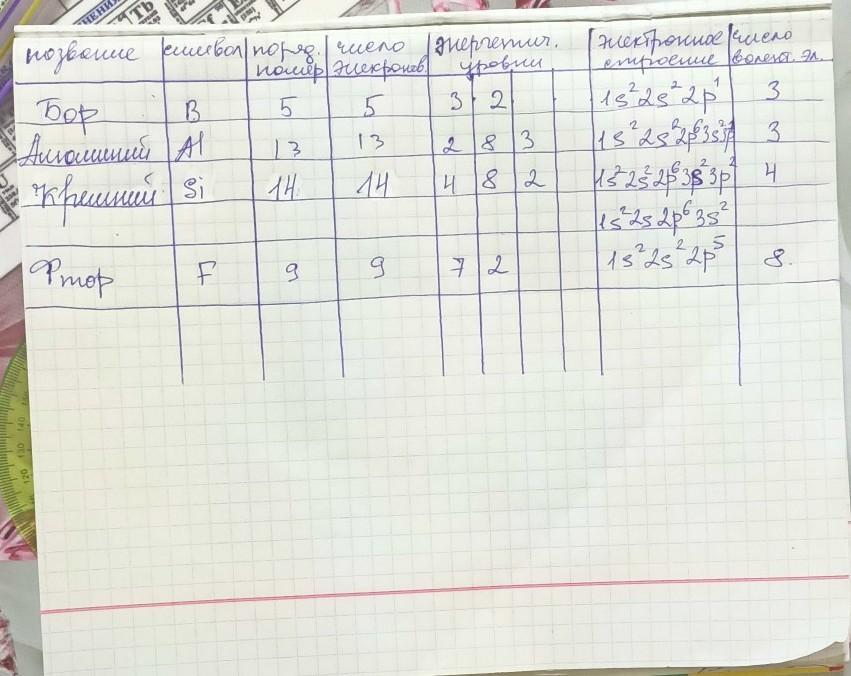 позвание символ поряд. номер число электронов энергетич. уровни электронное строение число валент. эл.
Бор B 5 5 3 2 1s² 2s² 2p¹ 3
Алюминий Al 13 13 2 8 3 1s² 2s² 2p⁶ 3s² 3p¹ 3
Кремний Si 14 14 4 8 2 1s² 2s² 2p⁶ 3s² 3p² 4
1s² 2s 2p⁶ 3s²
Фтор F 9 9 7 2 1s² 2s² 2p⁵ 8.